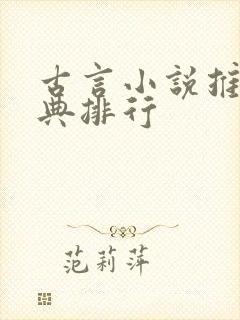 古言小説推
典排行
范莉萍